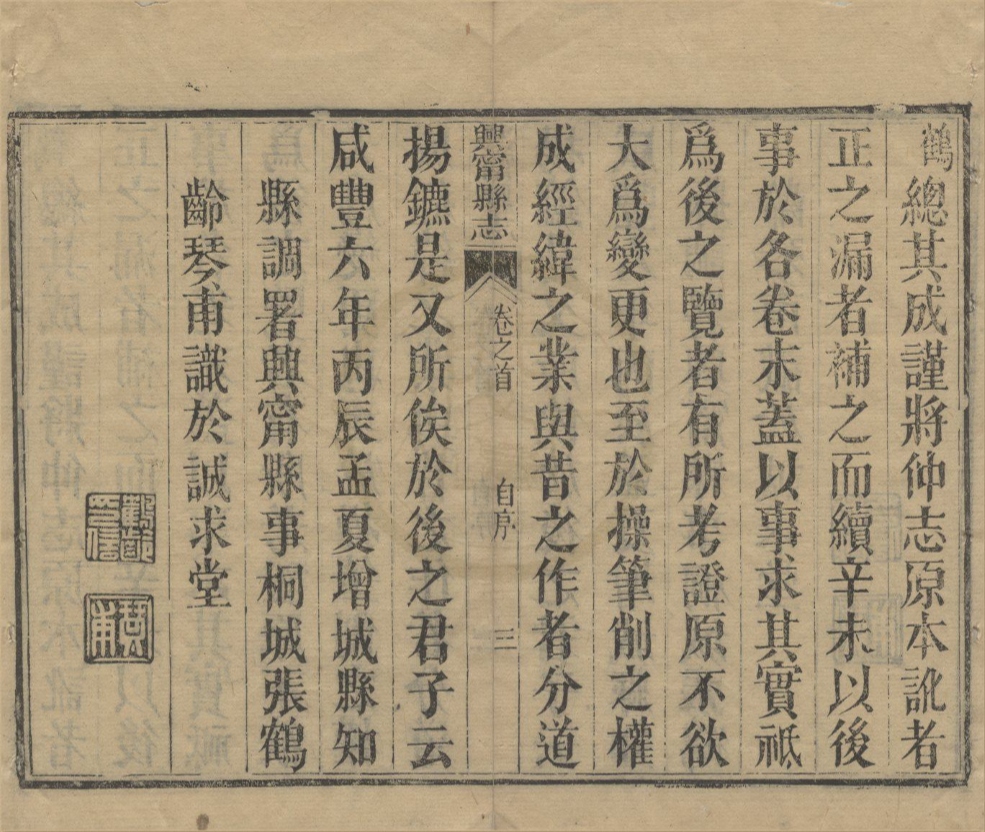 鶴總其成謹將仲志原本訛者
正之漏者補之而續辛未以後
事於各卷末蓋以事求其實祗
爲後之覽者有所考證原不欲
大爲變更也至於操筆削之權
成經緯之業與昔之作者分道
興甯縣志 卷之首 自序 三
揚鑣是又所俟於後之君子云
咸豐六年丙辰孟夏增城縣知
縣調署興甯縣事桐城張鶴
齡琴甫識於誠求堂